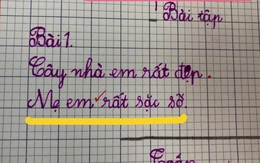 Bài tập
Bài 1.
Cây nhà em rất đẹp.
Mẹ em rất sặc sỡ.